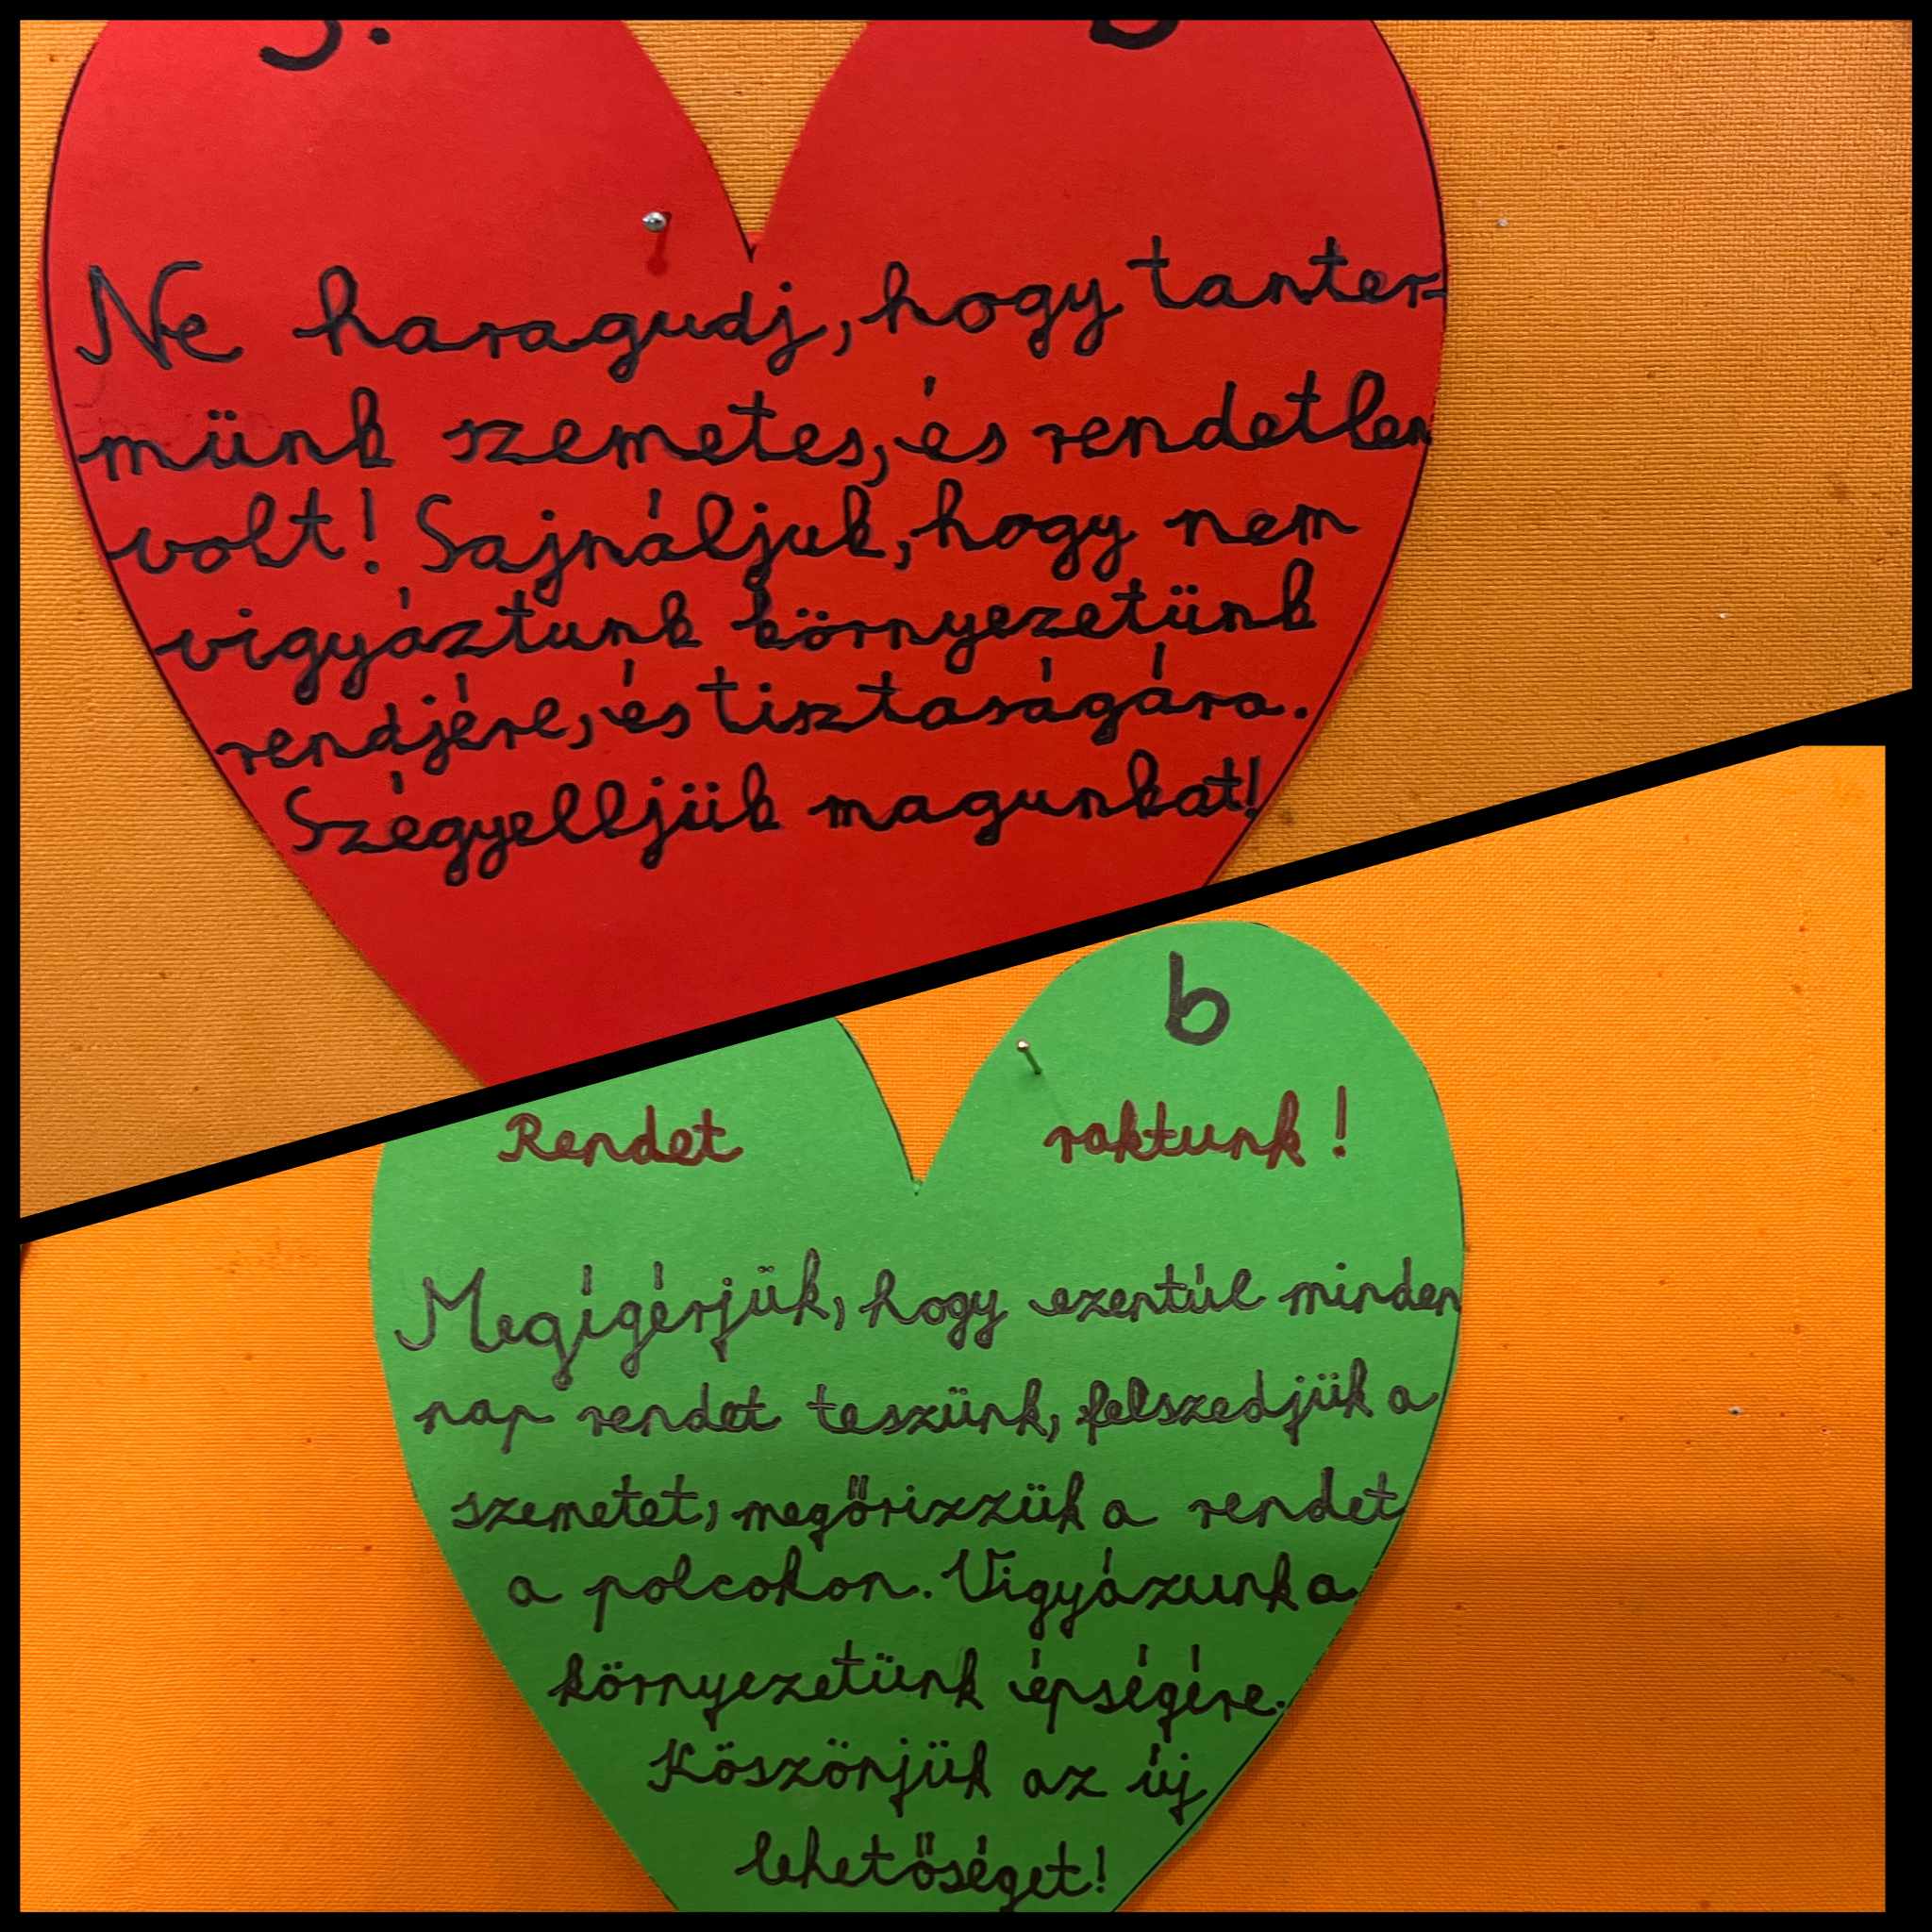 Ne haragudj, hogy tanter-
münk szemetes, és rendetlen
volt! Sajnáljuk, hogy nem
vigyáztunk környezetünk
rendjére, és tisztaságára.
Szégyelljük magunkat!
b
Rendet raktunk!
Megígérjük, hogy ezentúl minden
nap rendet teszünk, felszedjük a
szemetet, megőrizzük a rendet
a polcokon. Vigyázunk a
környezetünk épségére.
Köszönjük az új
lehetőséget!